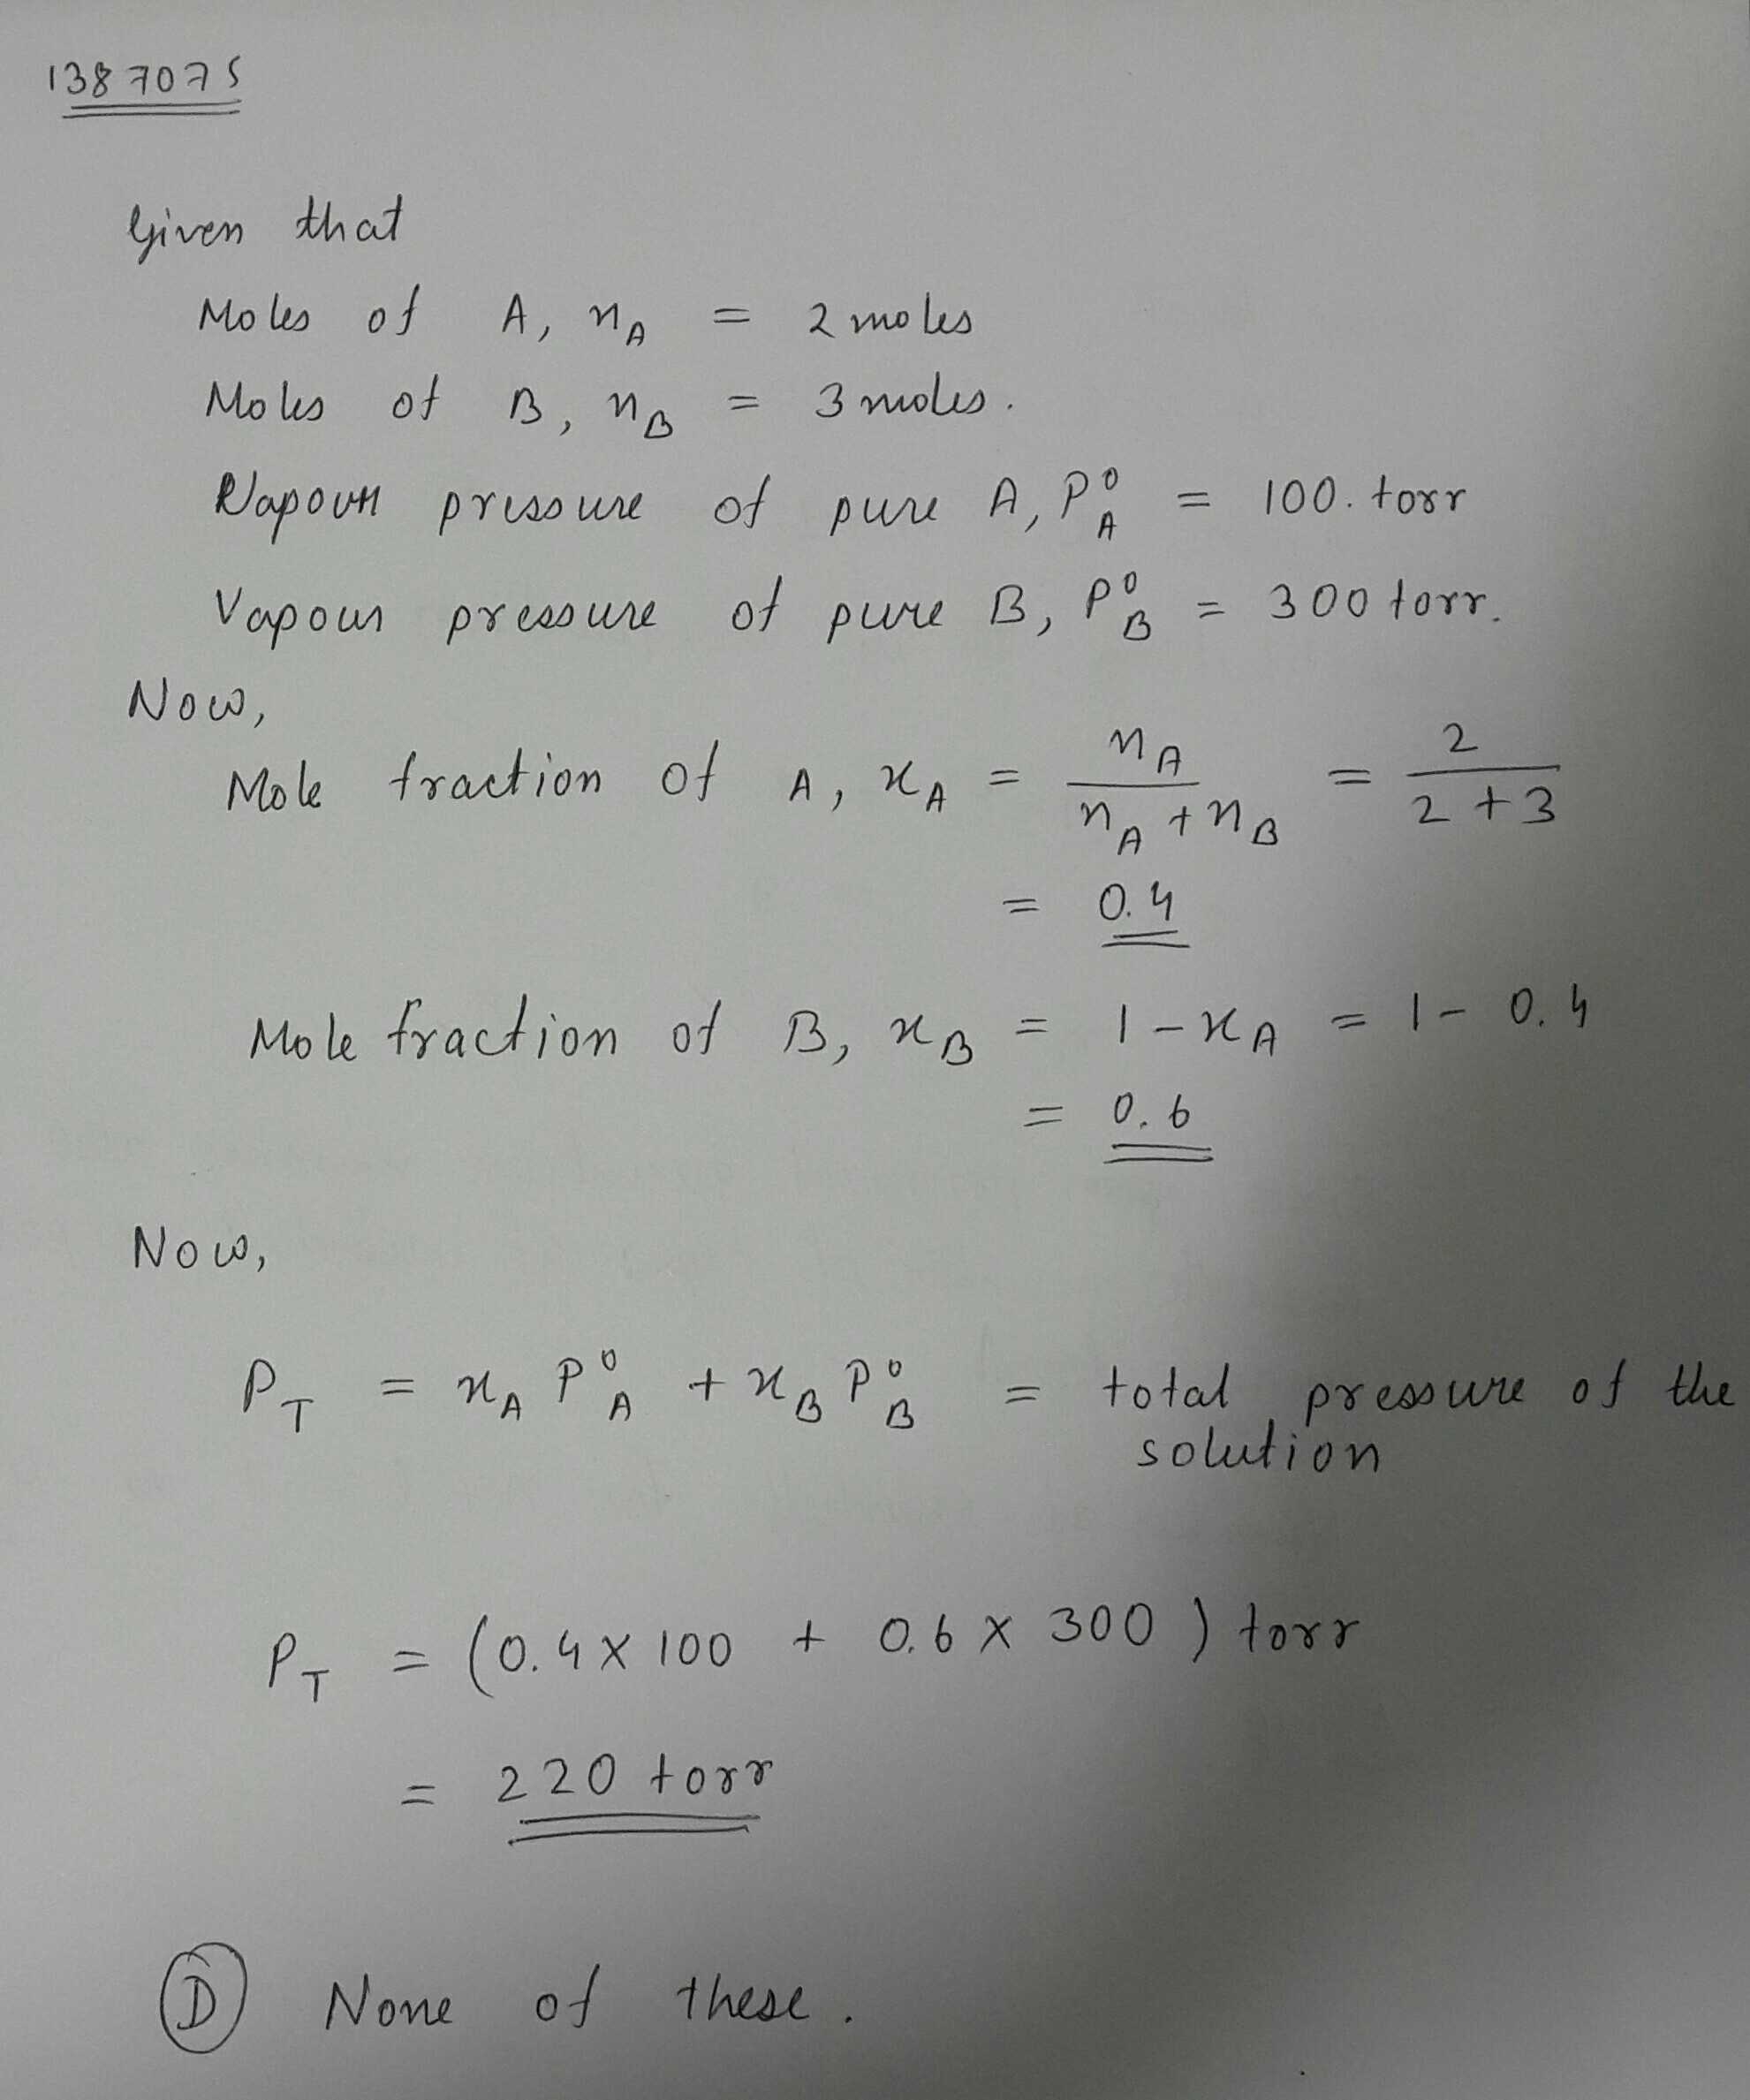 1387075
Given that
Moles of A, nA = 2 moles
Moles of B, nB = 3 moles.
Vapour pressure of pure A, P⁰A = 100. torr
Vapour pressure of pure B, P⁰B = 300 torr.
Now,
Mole fraction of A, xA = nA / (nA + nB) = 2 / (2 + 3)
= 0.4
Mole fraction of B, xB = 1 - xA = 1 - 0.4
= 0.6
Now,
PT = xA P⁰A + xB P⁰B = total pressure of the
solution
PT = (0.4 x 100 + 0.6 x 300) torr
= 220 torr
D None of these.